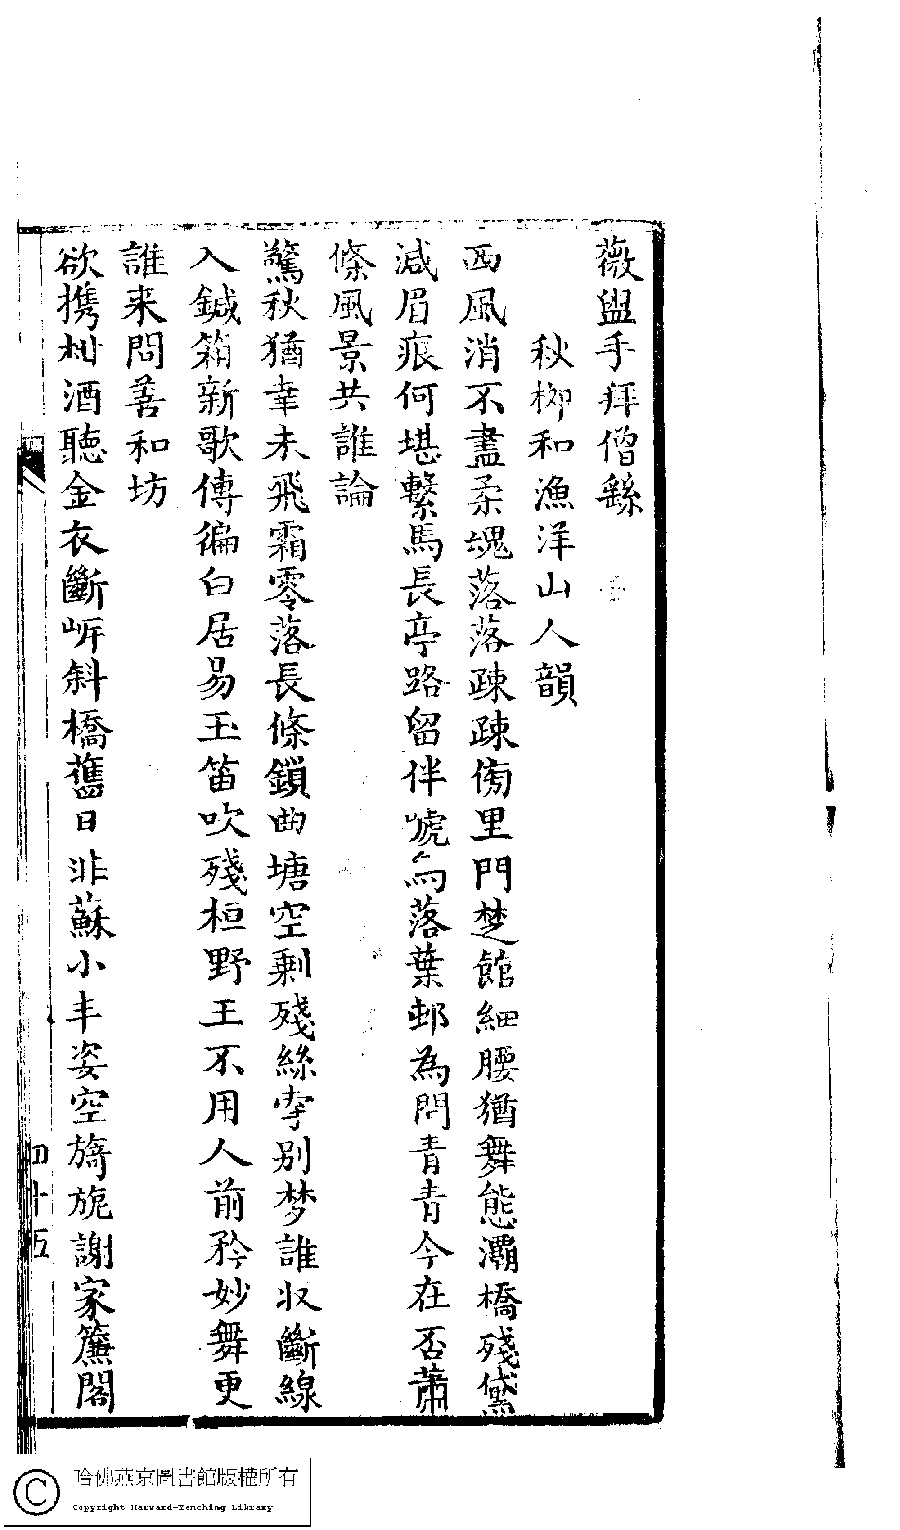 薇盥手拜僧繇
秋栁和漁洋山人韻
西風消不盡柔魂落落疎疎傍里門楚館細腰猶舞態灞橋殘黛
減眉痕何堪繫馬長亭路留伴嗁烏落葉邨為問青青今在否蕭
條風景共誰論
驚秋猶幸未飛霜零落長條鎖曲塘空剩殘絲牽別梦誰収斷線
入鍼箱新歌傳徧白居易玉笛吹殘桓野王不用人前矜妙舞更
誰来問善和坊
欲携柑酒聽金衣斷岸斜橋舊日非蘇小丰姿空旖旎謝家簾閣
四十五
哈佛燕京圖書館版權所有
Copyright Harvard-Yenching Library